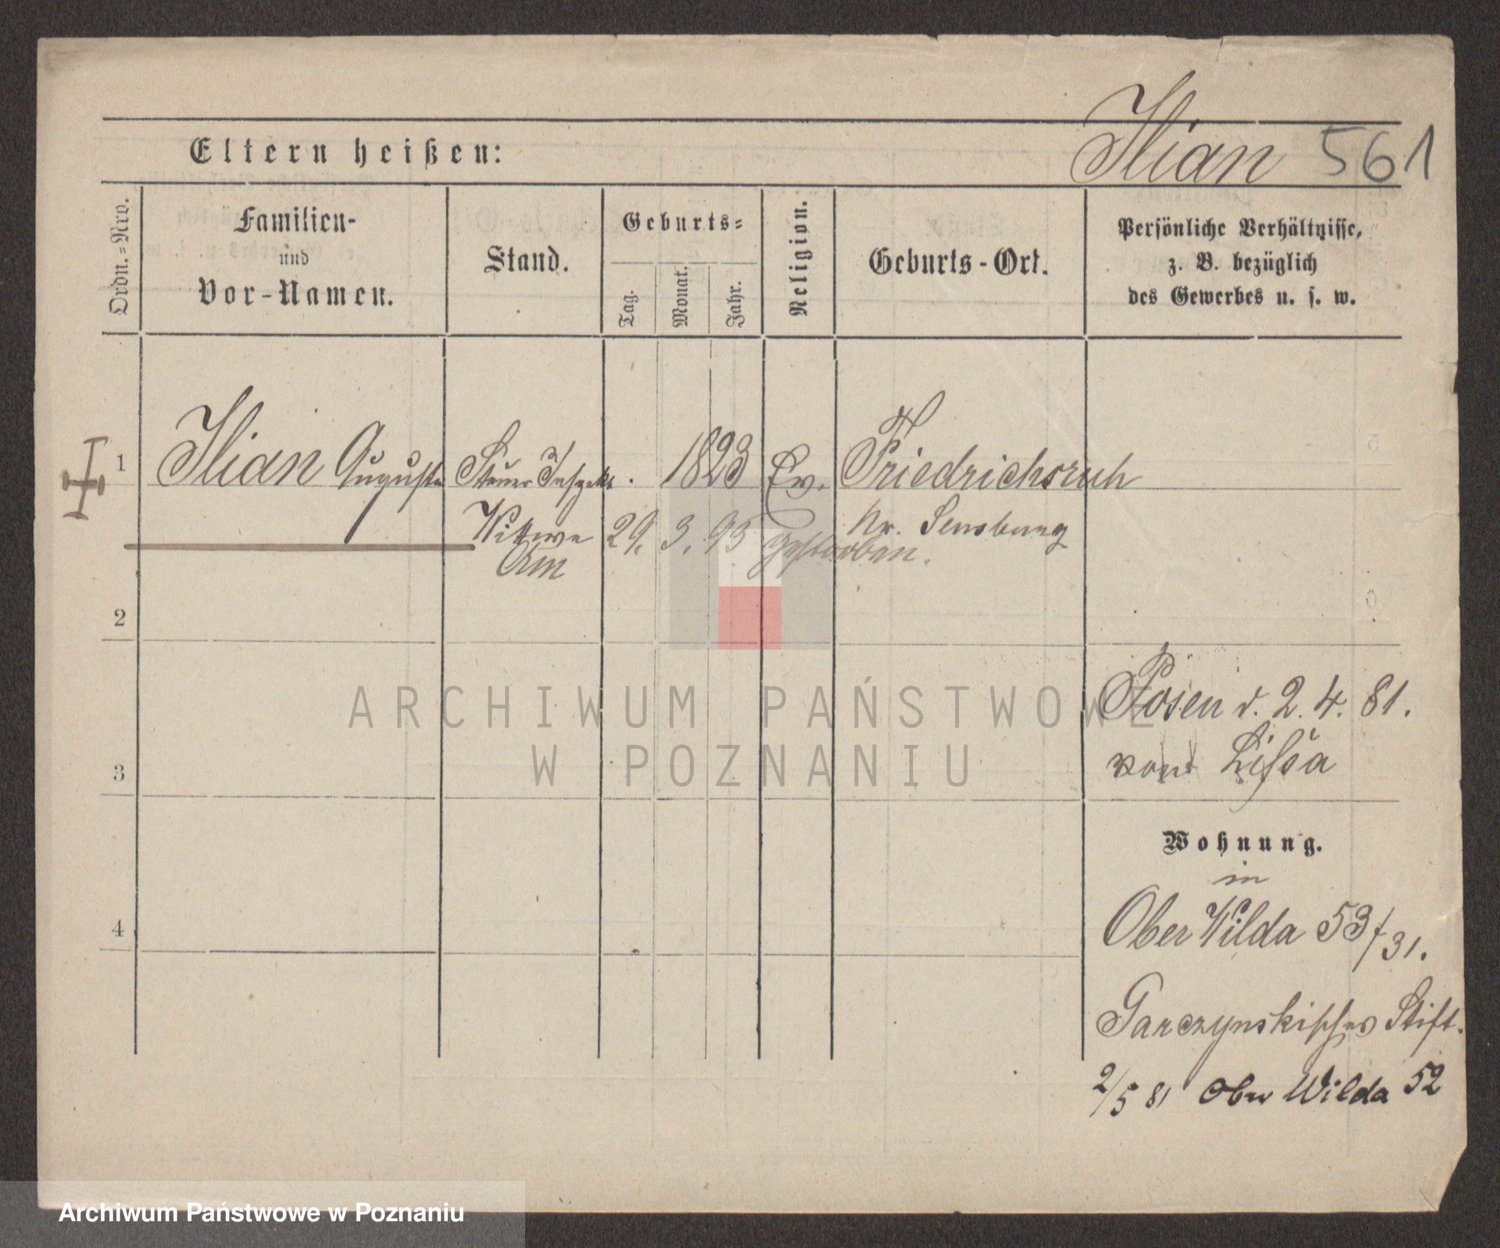 Ilian 561
Eltern heißen:
Ordn.-Nro.
Familien-
und
Vor-Namen.
Stand.
Geburts-
Tag.
Monat.
Jahr.
Religion.
Geburts-Ort.
Persönliche Verhältnisse,
z. B. bezüglich
des Gewerbes u. s. w.
1 Ilian Auguste Steuer Inspekt. 1823 Ev. Friedrichsruh
Wittwe 29. 3. 93 gestorben. Kr. Sensburg
2
Posen d. 2. 4. 81.
von Lissa
3
Wohnung.
in
Ober Wilda 53/31.
4
Garczynskisches Stift.
2/5 81 Ober Wilda 52
ARCHIWUM PAŃSTWOWE
W POZNANIU
Archiwum Państwowe w Poznaniu